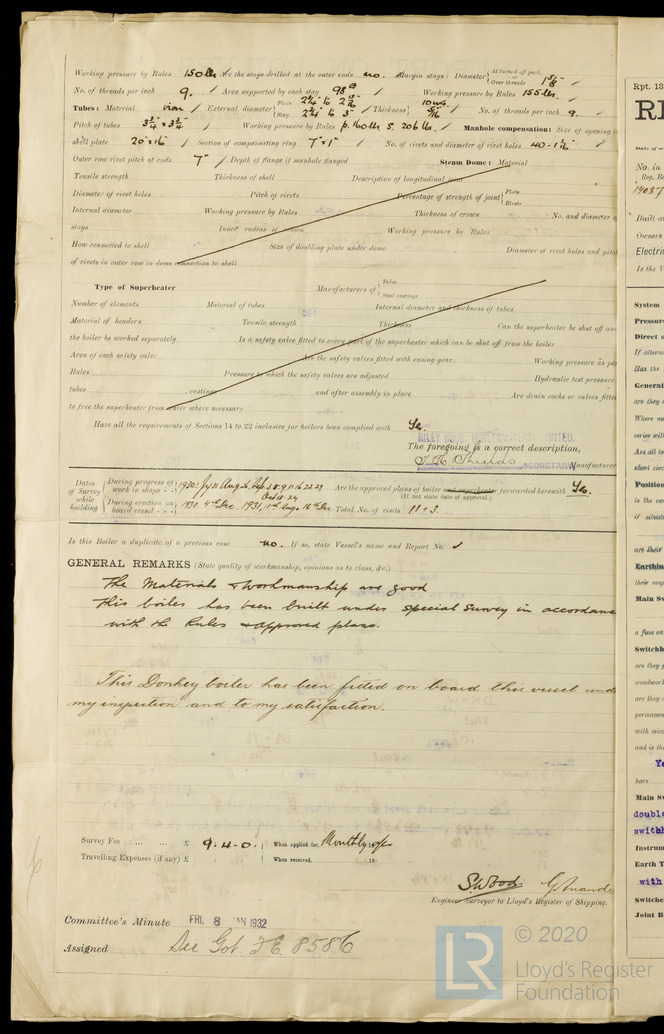 Working pressure by Rules 150 lbs Are the stays drilled at the outer ends no. Margin stays: Diameter { At turned off part, or Over threads 1 5/8"
No. of threads per inch 9. Area supported by each stay 98 Working pressure by Rules 155 lbs.
Tubes: Material iron External diameter { Plain 2 3/4" Stay 2 3/4" Thickness { 10 wg 5/16 No. of threads per inch 9.
Pitch of tubes 3 3/4" x 3 3/4" Working pressure by Rules p. 160 lbs S. 206 lbs. Manhole compensation: Size of opening i
shell plate 20" x 16" Section of compensating ring 7" x 1" No. of rivets and diameter of rivet holes 40 - 1 1/16"
Outer row rivet pitch at ends 7" Depth of flange if manhole flanged Steam Dome: Material
Tensile strength Thickness of shell Description of longitudinal joint
Diameter of rivet holes Pitch of rivets Percentage of strength of joint { Plate Rivets
Internal diameter Working pressure by Rules Thickness of crown No. and diameter o
stays Inner radius of crown Working pressure by Rules
How connected to shell Size of doubling plate under dome Diameter of rivet holes and pitch
of rivets in outer row in dome connection to shell
Type of Superheater Manufacturers of { Tubes Steel castings
Number of elements Material of tubes Internal diameter and thickness of tubes
Material of headers Tensile strength Thickness Can the superheater be shut off an
the boiler be worked separately Is a safety valve fitted to every part of the superheater which can be shut off from the boiler
Area of each safety valve Are the safety valves fitted with easing gear Working pressure as pe
Rules Pressure to which the safety valves are adjusted Hydraulic test pressure
tubes castings and after assembly in place Are drain cocks or valves fitte
to free the superheater from water where necessary
Have all the requirements of Sections 14 to 22 inclusive for boilers been complied with Yes.
RILEY BROS. LIMITED.
The foregoing is a correct description,
SECRETARY Manufacturer
Dates of Survey while building { During progress of work in shops - - 1930: July 31 Aug 26 Sep. 3.8.9.11.16.22.29 Oct 18.24 Are the approved plans of boiler and superheater forwarded herewith Yes.
(If not state date of approval.)
During erection on board vessel - - - 1930 4th Dec. 1931, 11th Aug. 16th Dec. Total No. of visits 11 + 3.
Is this Boiler a duplicate of a previous case no. If so, state Vessel's name and Report No.
GENERAL REMARKS (State quality of workmanship, opinions as to class, &c.)
The Materials & Workmanship are good
This boiler has been built under special survey in accordanc
with the Rules & approved plans.
This Donkey boiler has been fitted on board this vessel unde
my inspection and to my satisfaction.
Survey Fee ... ... £ 9.4.0. When applied for, Monthly a/c
Travelling Expenses (if any) £ When received, 19
S. Wood
Engineer Surveyor to Lloyd's Register of Shipping.
Committee's Minute FRI. 8 JAN 1932
Assigned See Got. J.E. 8586
Rpt. 13
Date of w
No. in
Reg. Bo
1408
Built a
Owners
Electric
Is the V
System
Pressur
Direct o
If altern
Has the
General
are they
Where m
series wit
Are all i
short circ
Position
is the ve
if situat
are their
Earthin
their resp
Main Sw
a fuse on
Switchb
are they
woodwor
are they
permanen
with mic
and is th
Ye
bars
Main Sw
double
switch
Instrum
Earth T
with
Switche
Joint B
LR © 2020
Lloyd's Register
Foundation